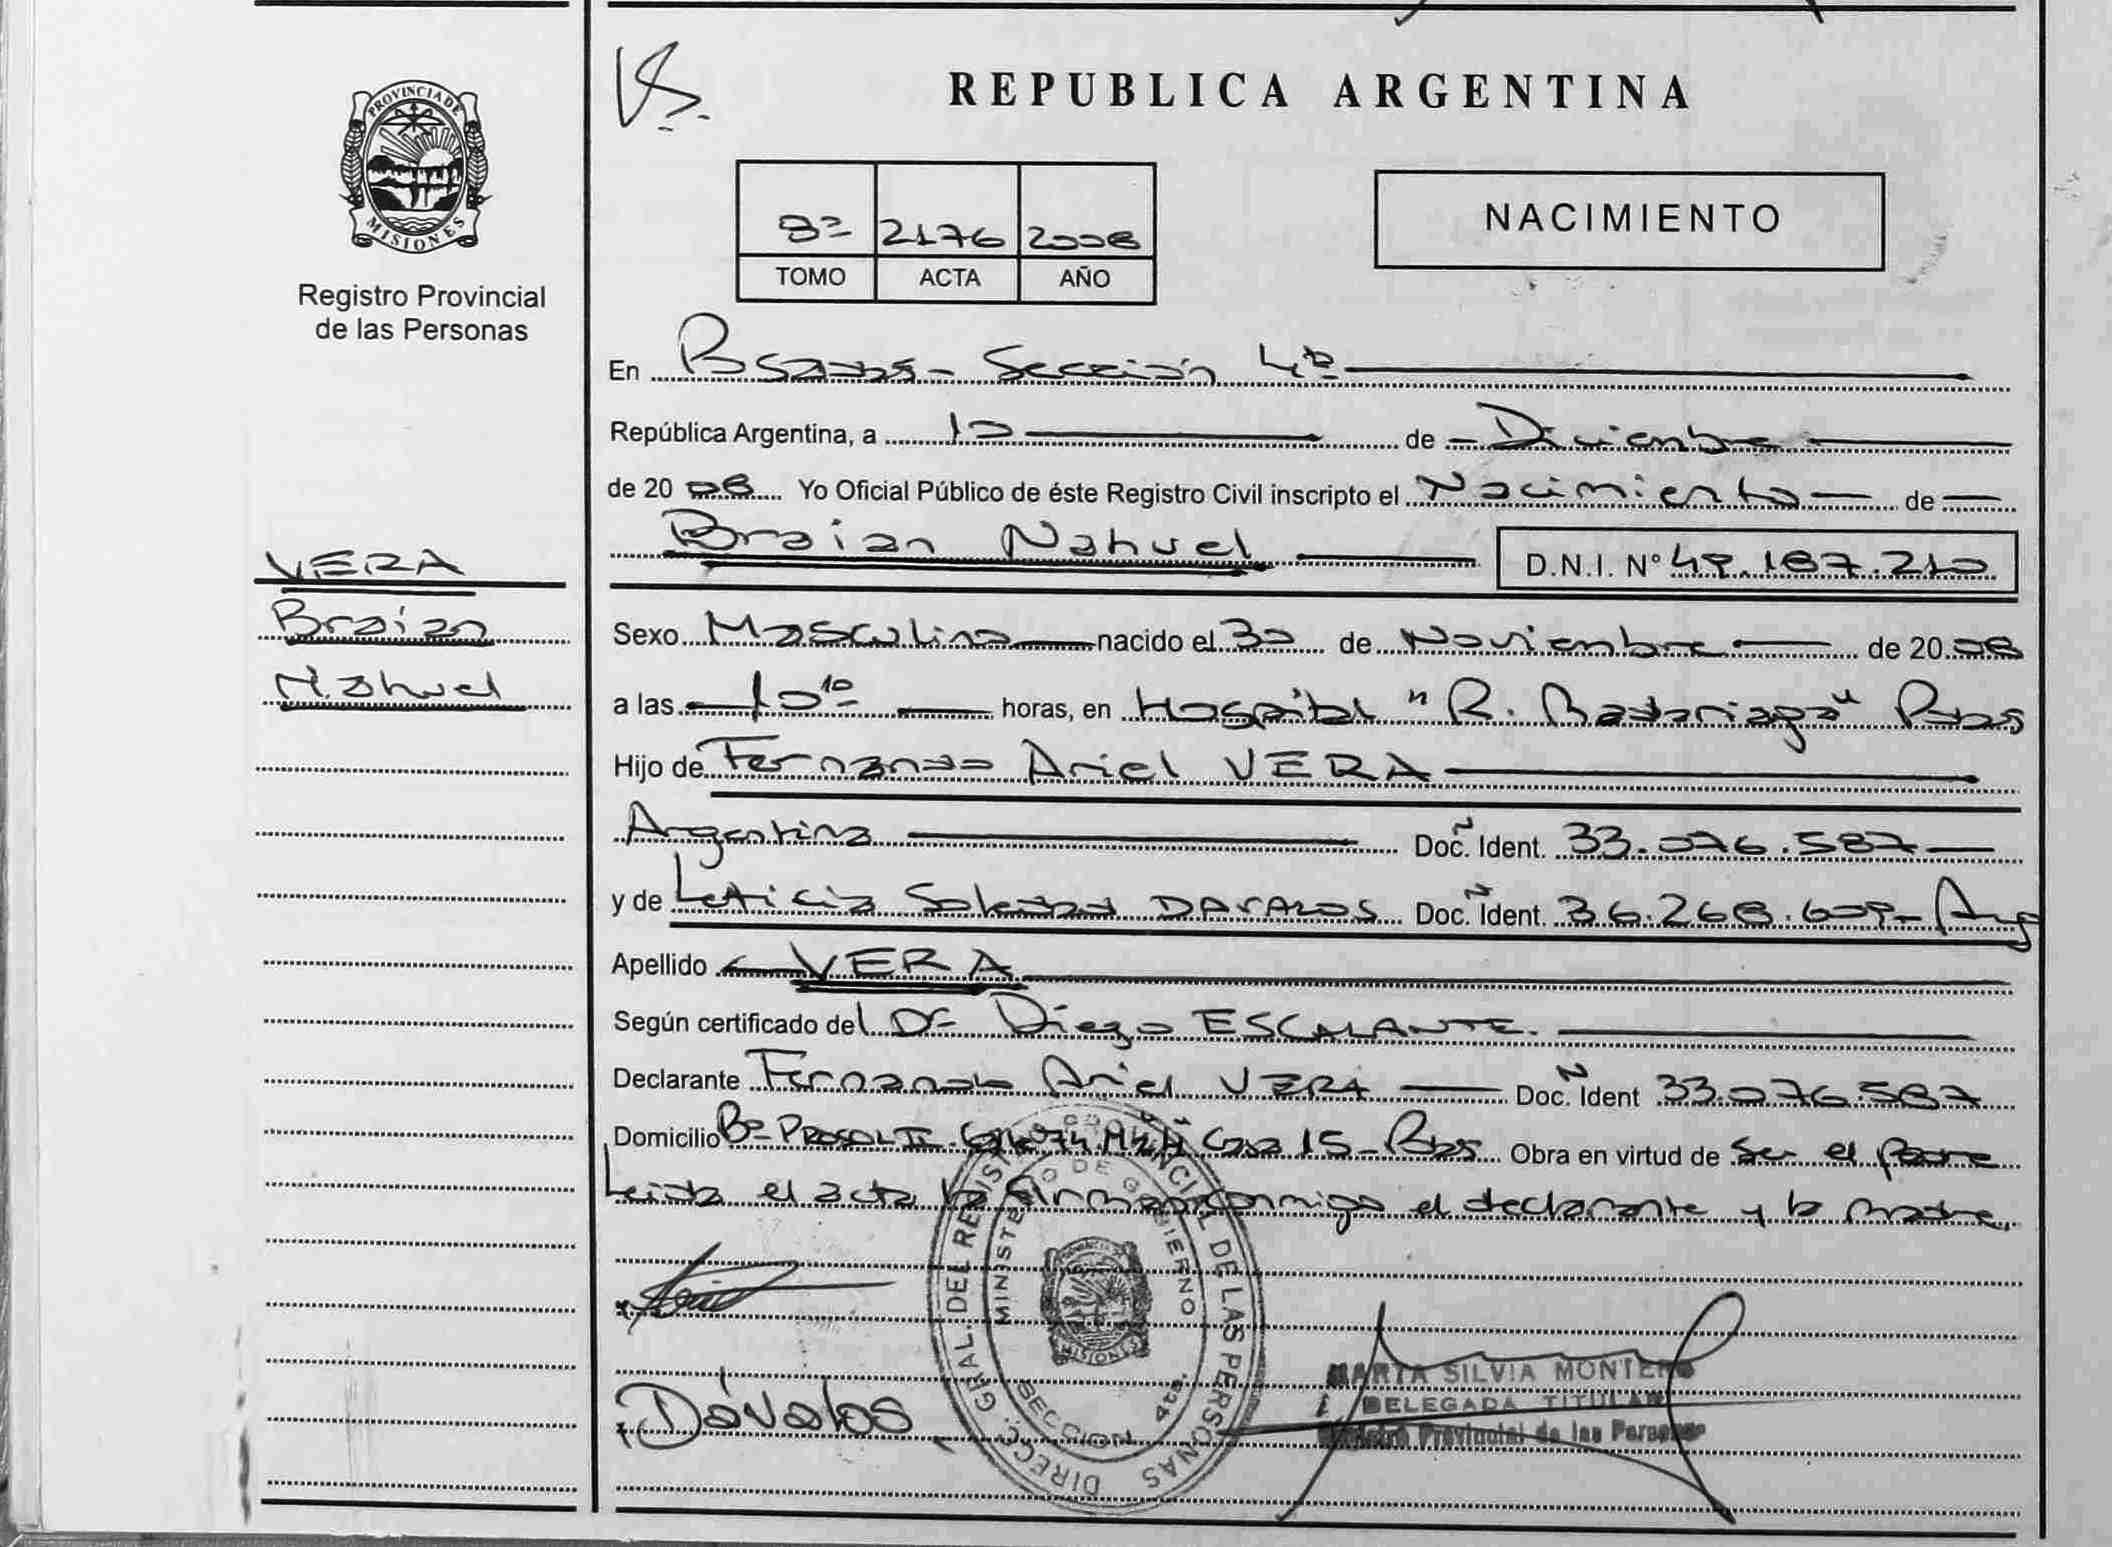 PROVINCIA DE
MISIONES
Registro Provincial
de las Personas
VERA
Braian
Nahuel
REPUBLICA ARGENTINA
8º 2176 2008
TOMO ACTA AÑO
NACIMIENTO
En Posadas - Sección 4ta
República Argentina, a 10 de Diciembre
de 20 08 Yo Oficial Público de éste Registro Civil inscripto el Nacimiento de
Braian Nahuel D.N.I. Nº 49.187.210
Sexo Masculino nacido el 30 de Noviembre de 20 08
a las 10 10 horas, en Hospital "R. Madariaga" Pdas
Hijo de Fernando Ariel VERA
Argentina Doc. Ident. 33.076.587
y de Leticia Soledad DAVALOS Doc. Ident. 36.268.609 - Arg
Apellido VERA
Según certificado del Dr Diego ESCALANTE.
Declarante Fernando Ariel VERA Doc. Ident 33.076.587
Domicilio Bº Casa 15 - Pdas Obra en virtud de ser el padre
Leida el acta la firman conmigo el declarante y la madre.
DIRECC. GRAL. DEL REGISTRO PROVINCIAL DE LAS PERSONAS
MINISTERIO DE GOBIERNO
MISIONES
SECCION 4ta.
Dávalos
MARTA SILVIA MONTERO
DELEGADA TITULAR
Registro Provincial de las Personas